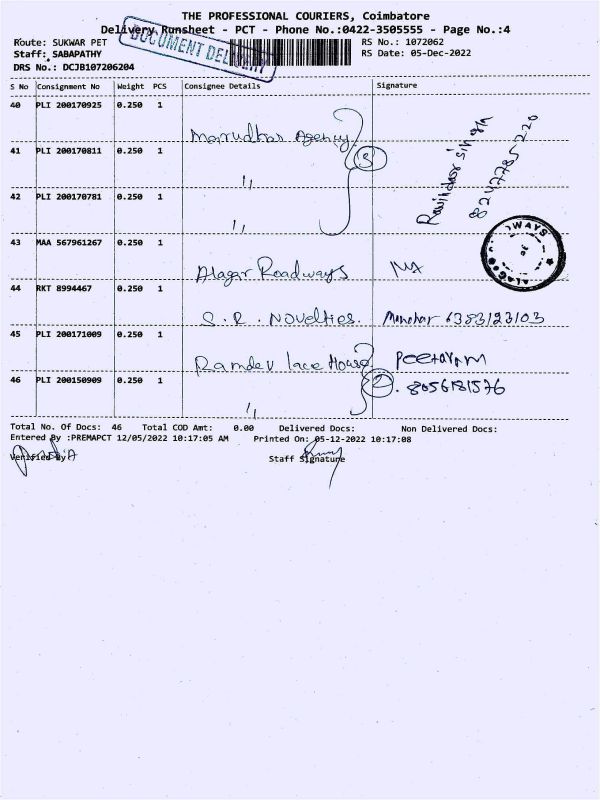 THE PROFESSIONAL COURIERS, Coimbatore
Delivery Runsheet - PCT - Phone No.:0422-3505555 - Page No.:4
DOCUMENT DELIVERY
Route: SUKWAR PET
RS No.: 1072062
Staff: SABAPATHY
RS Date: 05-Dec-2022
DRS No.: DCJB107206204
S No Consignment No Weight PCS Consignee Details Signature
40 PLI 200170925 0.250 1
Marudhar Agency
41 PLI 200170811 0.250 1
3
"
42 PLI 200170781 0.250 1
"
8247785220
43 MAA 567961267 0.250 1
Alagar Roadways
44 RKT 8994467 0.250 1
S.R. Novelties. Manohar 6383123103
45 PLI 200171009 0.250 1
Ramdev lace House
46 PLI 200150909 0.250 1
2 . 8056181576
"
Total No. Of Docs: 46 Total COD Amt: 0.00 Delivered Docs: Non Delivered Docs:
Entered By :PREMAPCT 12/05/2022 10:17:05 AM Printed On: 05-12-2022 10:17:08
Verified By
Staff Signature